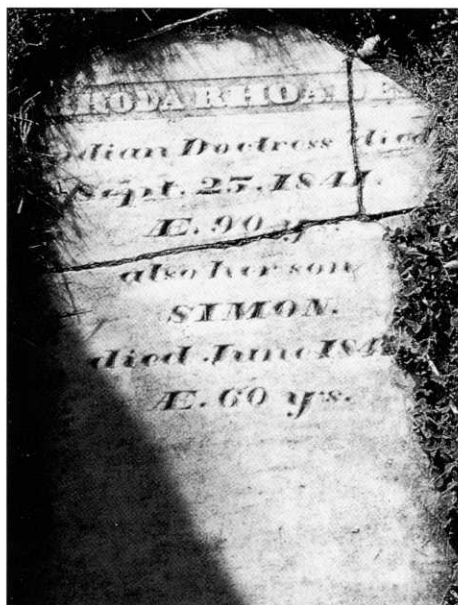 RHODA RHOADES
Indian Doctress died
Sept. 25. 1841.
Æ. 90 ys.
also her son
SIMON.
died June 184
Æ. 60 ys.